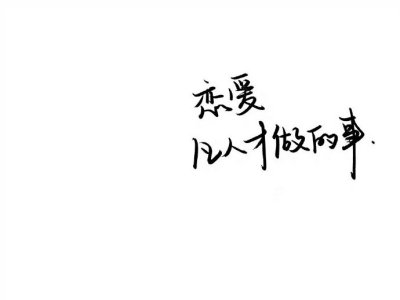 恋爱
凡人才做的事.